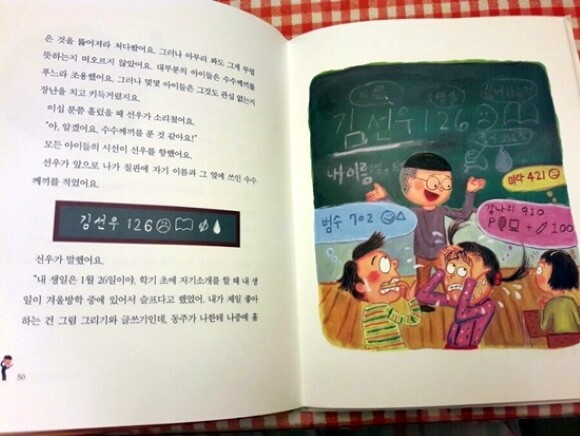 은 것을 뚫어져라 쳐다봤어요. 그러나 아무리 봐도 그게 무얼
뜻하는지 떠오르지 않았어요. 대부분의 아이들은 수수께끼를
푸느라 조용했어요. 그러나 몇몇 아이들은 그것도 관심 없는지
장난을 치고 키득거렸지요.
이십 분쯤 흘렀을 때 선우가 소리쳤어요.
"아, 알겠어요. 수수께끼를 푼 것 같아요!"
모든 아이들의 시선이 선우를 향했어요.
선우가 앞으로 나가 칠판에 자기 이름과 그 옆에 쓰인 수수
께끼를 적었어요.
김선우 126
선우가 말했어요.
"내 생일은 1월 26일이야. 학기 초에 자기소개를 할 때 내 생
일이 겨울방학 중에 있어서 슬프다고 했었어. 내가 제일 좋아
하는 건 그림 그리기와 글쓰기인데, 동주가 나한테 나중에 훌
50
김선우 126
내 이름
421
범수 702
강나리 910
P + 100